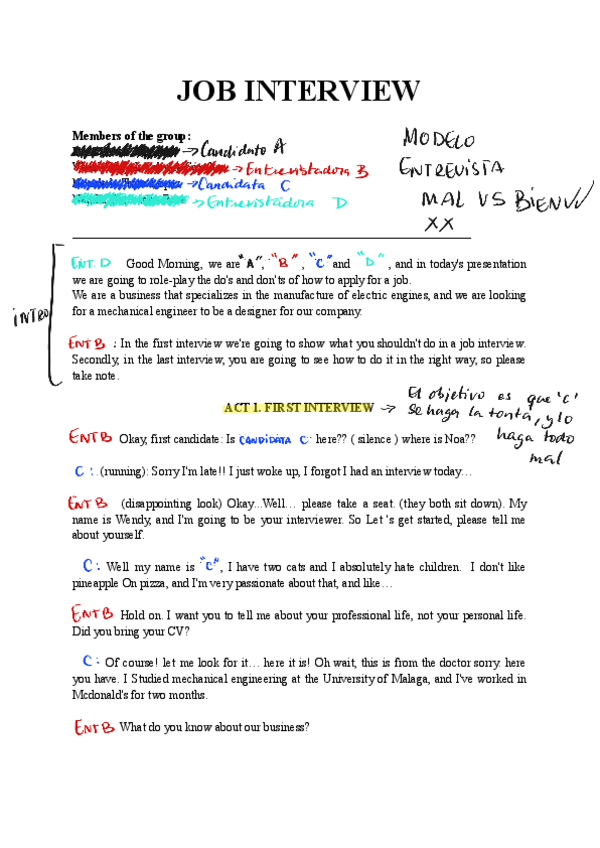 JOB INTERVIEW
Members of the group:
→ Candidato A
→ Entrevistadora B
→ Candidata C
→ Entrevistadora D
MODELO
ENTREVISTA
MAL VS BIEN ✓✓
XX
INTRO
ENT. D Good Morning, we are "A", "B", "C" and "D", and in today's presentation
we are going to role-play the do's and don'ts of how to apply for a job.
We are a business that specializes in the manufacture of electric engines, and we are looking
for a mechanical engineer to be a designer for our company.
ENT B : In the first interview we're going to show what you shouldn't do in a job interview.
Secondly, in the last interview, you are going to see how to do it in the right way, so please
take note.
ACT 1. FIRST INTERVIEW →
El objetivo es que 'C'
se haga la tonta, y lo
haga todo
mal
ENT B Okay, first candidate: Is CANDIDATA C: here?? ( silence ) where is Noa??
C : . (running): Sorry I'm late!! I just woke up, I forgot I had an interview today…
ENT B (disappointing look) Okay...Well… please take a seat. (they both sit down). My
name is Wendy, and I'm going to be your interviewer. So Let 's get started, please tell me
about yourself.
C: Well my name is "C", I have two cats and I absolutely hate children. I don't like
pineapple On pizza, and I'm very passionate about that, and like…
ENT B Hold on. I want you to tell me about your professional life, not your personal life.
Did you bring your CV?
C: Of course! let me look for it… here it is! Oh wait, this is from the doctor sorry. here
you have. I Studied mechanical engineering at the University of Malaga, and I've worked in
Mcdonald's for two months.
ENT B What do you know about our business?